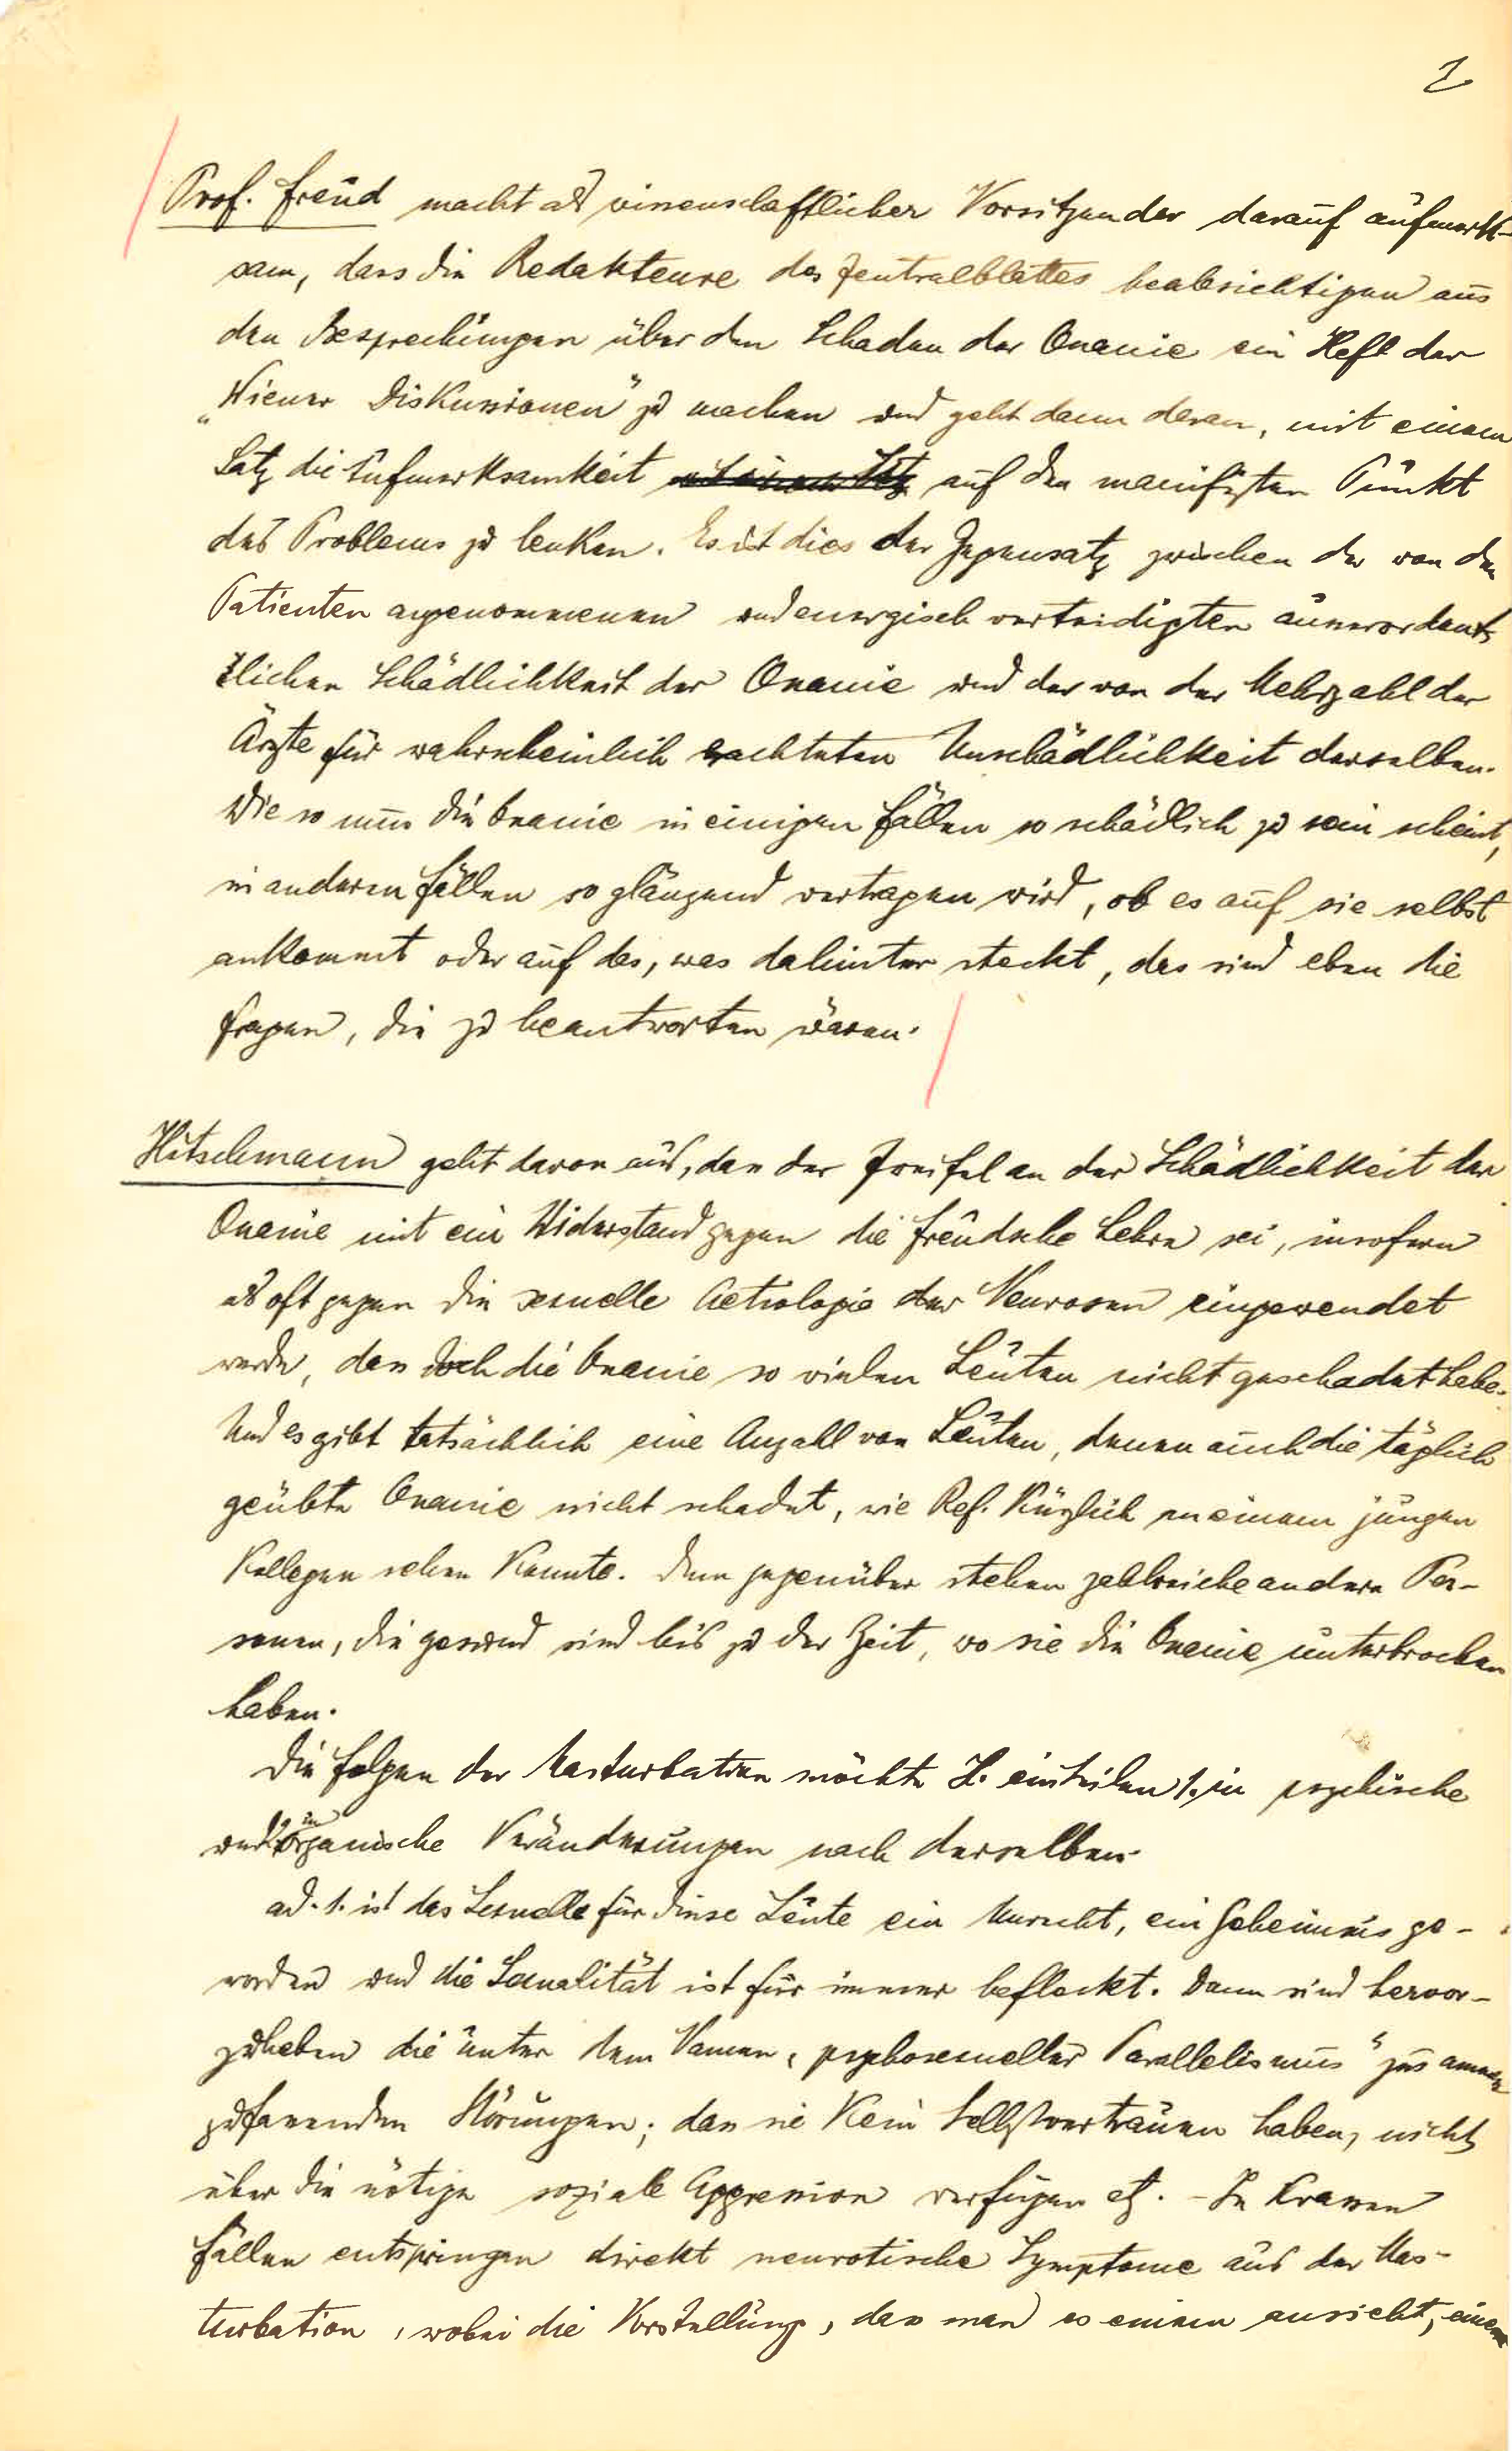 2
Prof. Freud macht als wissenschaftlicher Vorsitzender darauf aufmerk-
sam, dass die Redakteure des Zentralblattes beabsichtigen aus
den Besprechungen über den Schaden der Onanie ein Heft der
„Wiener Diskussionen“ zu machen und geht dann daran, mit einem
Satz die Aufmerksamkeit auf den manifesten Punkt
des Problems zu lenken. Es ist dies der Gegensatz zwischen der von den
Patienten angenommenen und energisch verteidigten ausserordent-
lichen Schädlichkeit der Onanie und der von der Mehrzahl der
Ärzte für wahrscheinlich erachteten Unschädlichkeit derselben.
Wieso nun die Onanie in einigen Fällen so schädlich zu sein scheint,
in anderen Fällen so glänzend vertragen wird, ob es auf sie selbst
ankommt oder auf das, was dahinter steckt, das sind eben die
Fragen, die zu beantworten wären.
Hitschmann geht davon aus, dass der Zweifel an der Schädlichkeit der
Onanie mit ein Widerstand gegen die Freudsche Lehre sei, insofern
als oft gegen die sexuelle Aetiologie der Neurosen eingewendet
werde, dass doch die Onanie so vielen Leuten nicht geschadet habe.
Und es gibt tatsächlich eine Anzahl von Leuten, denen auch die täglich
geübte Onanie nicht schadet, wie Ref. kürzlich an einem jungen
Kollegen sehen konnte. Dem gegenüber stehen zahlreiche andere Per-
sonen, die gesund sind bis zu der Zeit, wo sie die Onanie unterbrochen
haben.
Die Folgen der Masturbation möchte H. einteilen 1. in psychische
und 2. in organische Veränderungen nach derselben.
ad. 1. ist das Sexuelle für diese Leute ein Unrecht, ein Geheimnis ge-
worden und die Sexualität ist für immer befleckt. Dann sind hervor-
zuheben die unter dem Namen „psychosexueller Parallelismus“ zusammen
zufassenden Störungen; dass sie kein Selbstvertrauen haben, nicht
über die nötige soziale Aggression verfügen etz. - In krassen
Fällen entspringen direkt neurotische Symptome aus der Mas-
turbation, wobei die Vorstellung, dass man es einem ansieht, einen